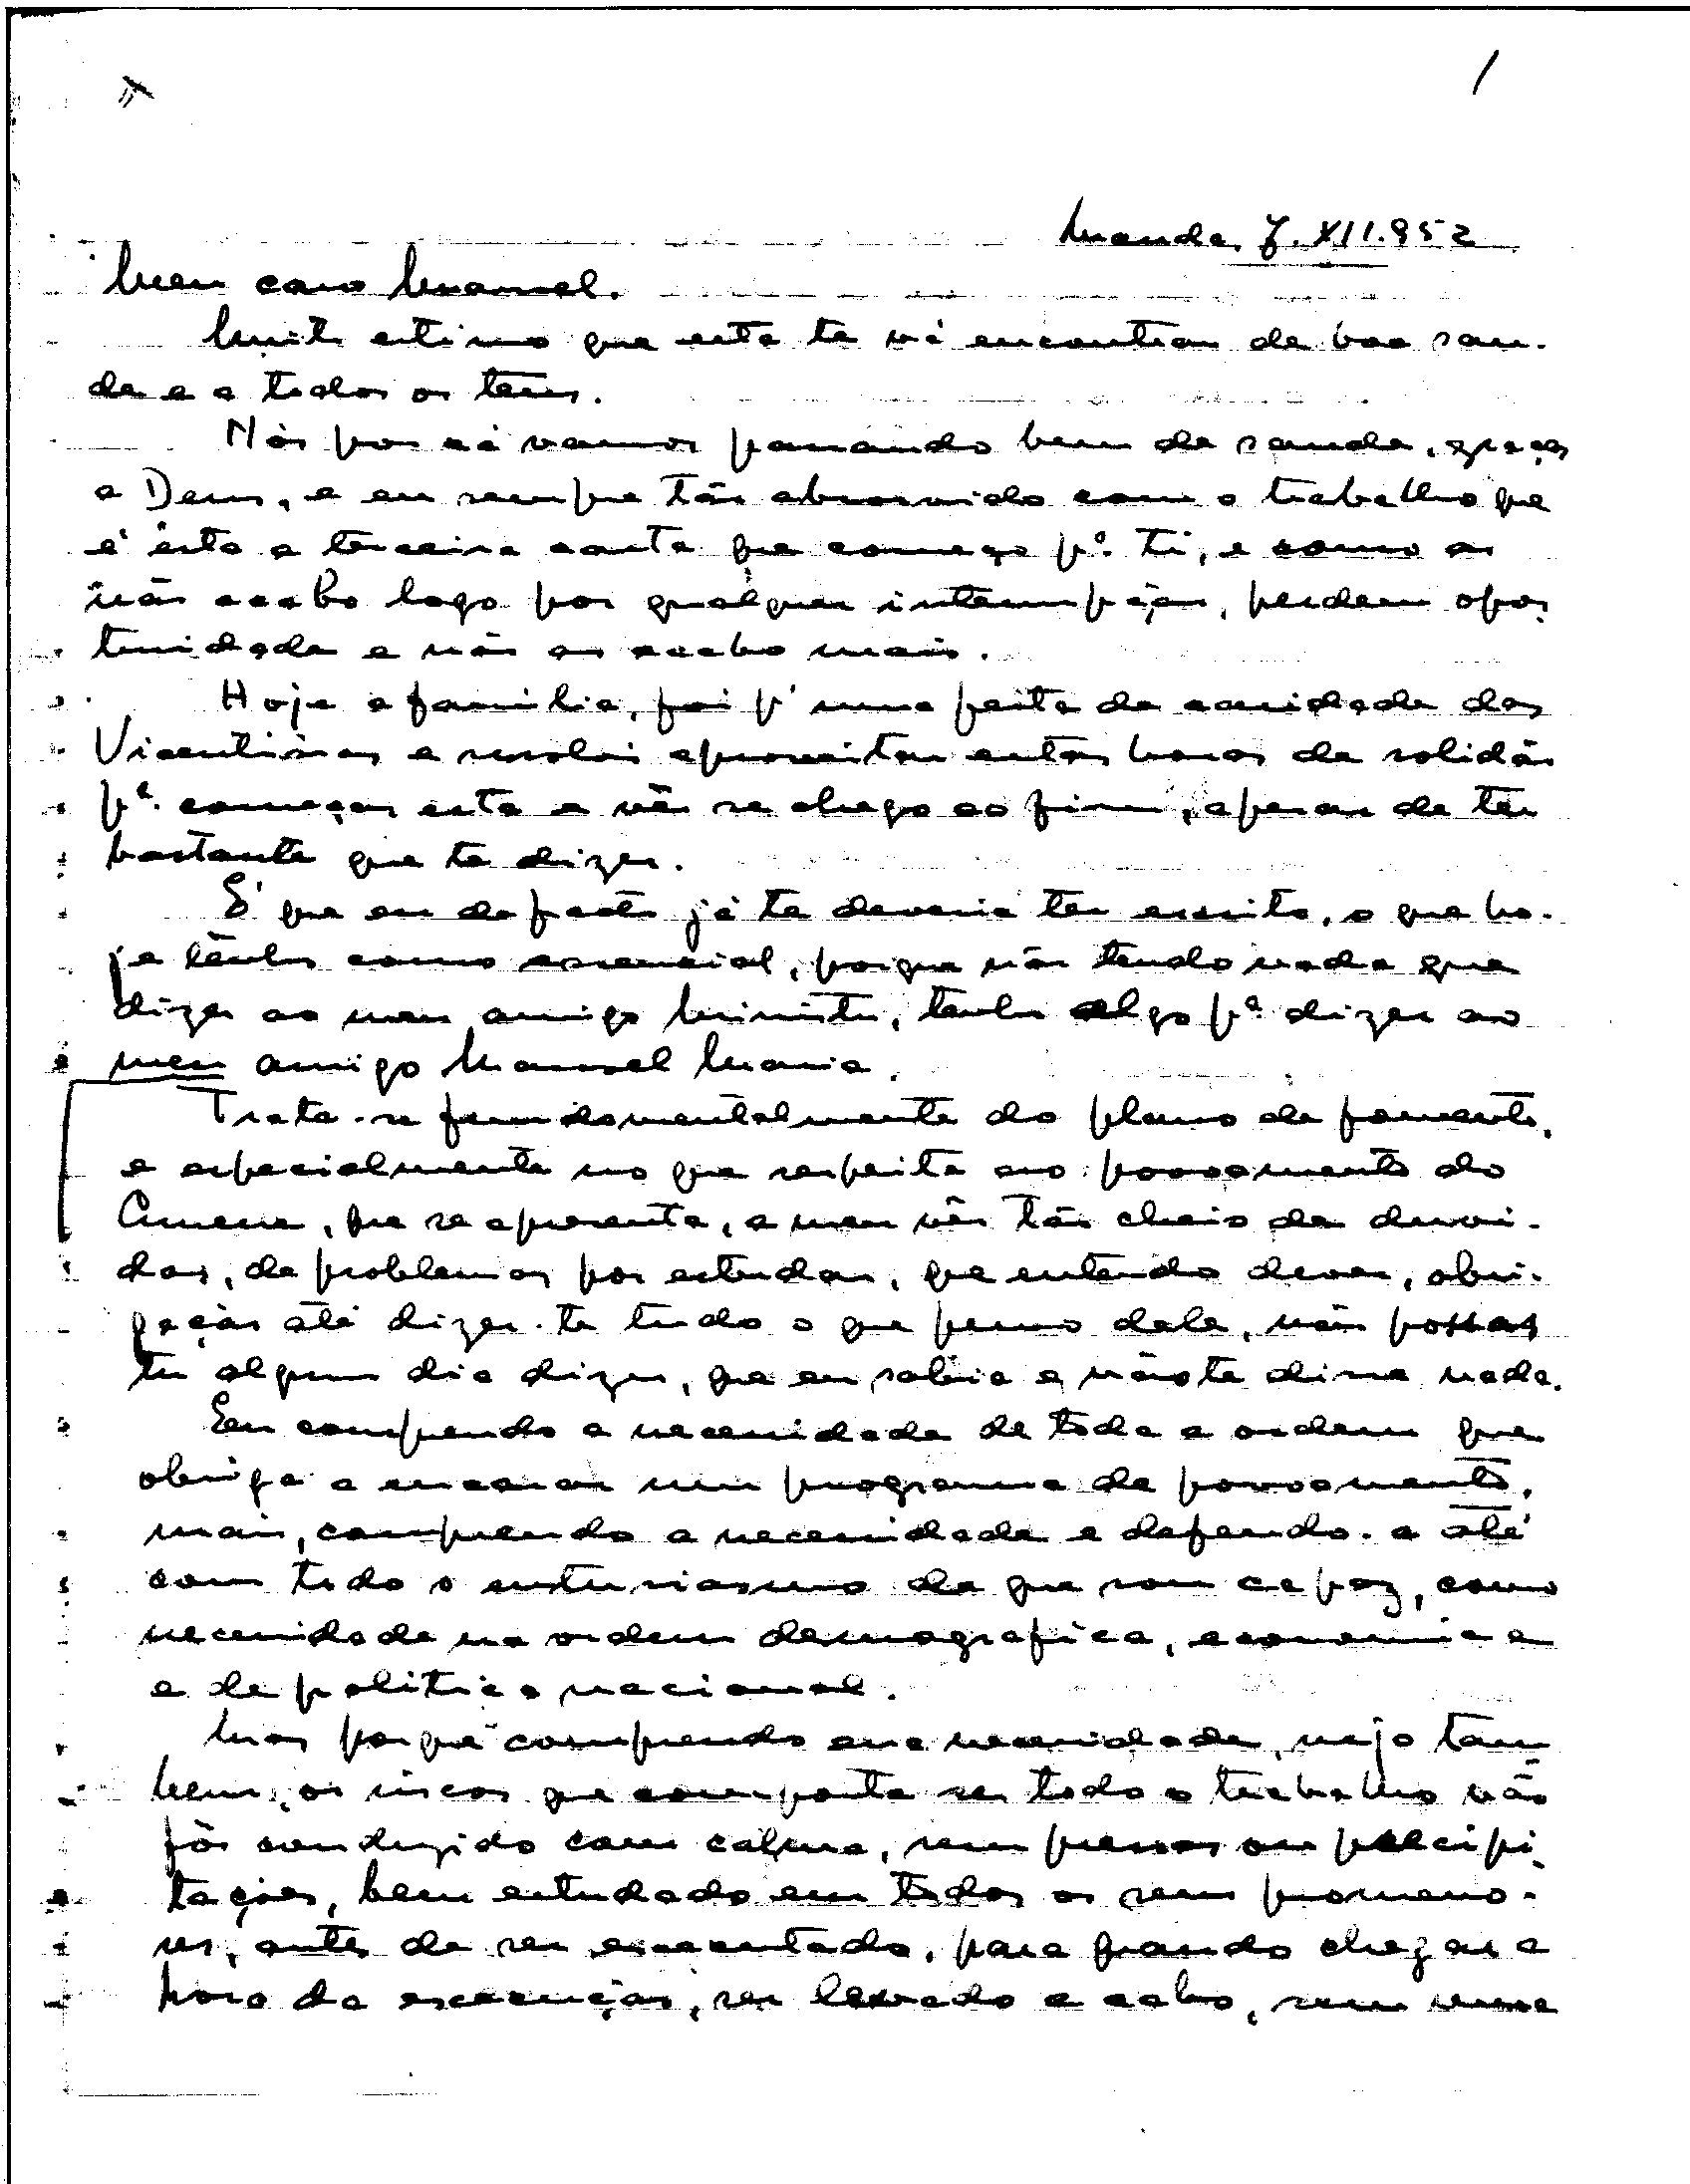 1
Luanda, 7.XII.952
Meu caro Manuel.
Muito estimo que esta te vá encontrar de boa sau-
de e a todos os teus.
Nós por cá vamos passando bem de saude, graças
a Deus, e eu sempre tão absorvido com o trabalho que
é ésta a terceira carta que começo pª. ti, e como as
não acabo logo por qualquer interrupção, perdem opor-
tunidade e não as acabo mais.
Hoje a familia, foi p' uma festa de caridade das
Vicentinas e resolvi aproveitar estas horas de solidão
pª. começar esta a vêr se chego ao fim, apesar de ter
bastante que te dizer.
E' que eu de facto já te deveria ter escrito, o que ho-
je tenho como essencial, porque não tendo nada que
dizer ao meu amigo Ministro, tenho algo pª dizer ao
meu amigo Manuel Maria.
Trata-se fundamentalmente do plano de fomento,
e especialmente no que respeita ao povoamento do
Cunene, que se apresenta, a meu vêr tão cheio de duvi-
das, de problemas por estudar, que entendo dever, obri-
gação até dizer-te tudo o que penso dele, não possas
tu algum dia dizer, que eu sabia e não te disse nada.
Eu compreendo a necessidade de toda a ordem que
obriga a encarar um programa de povoamento,
mais, compreendo a necessidade e defendo-a até
com todo o entusiasmo de que sou capaz, como
necessidade na ordem demografica, economica
e de politica nacional.
Mas porque compreendo essa necessidade, vejo tam
bem, os riscos que comporta se todo o trabalho não
fôr conduzido com calma, sem pressas ou precipi-
tações, bem estudado em todos os seus pormeno-
res, antes de ser executado, para quando chegar a
hora da execução, ser levado a cabo, sem uma